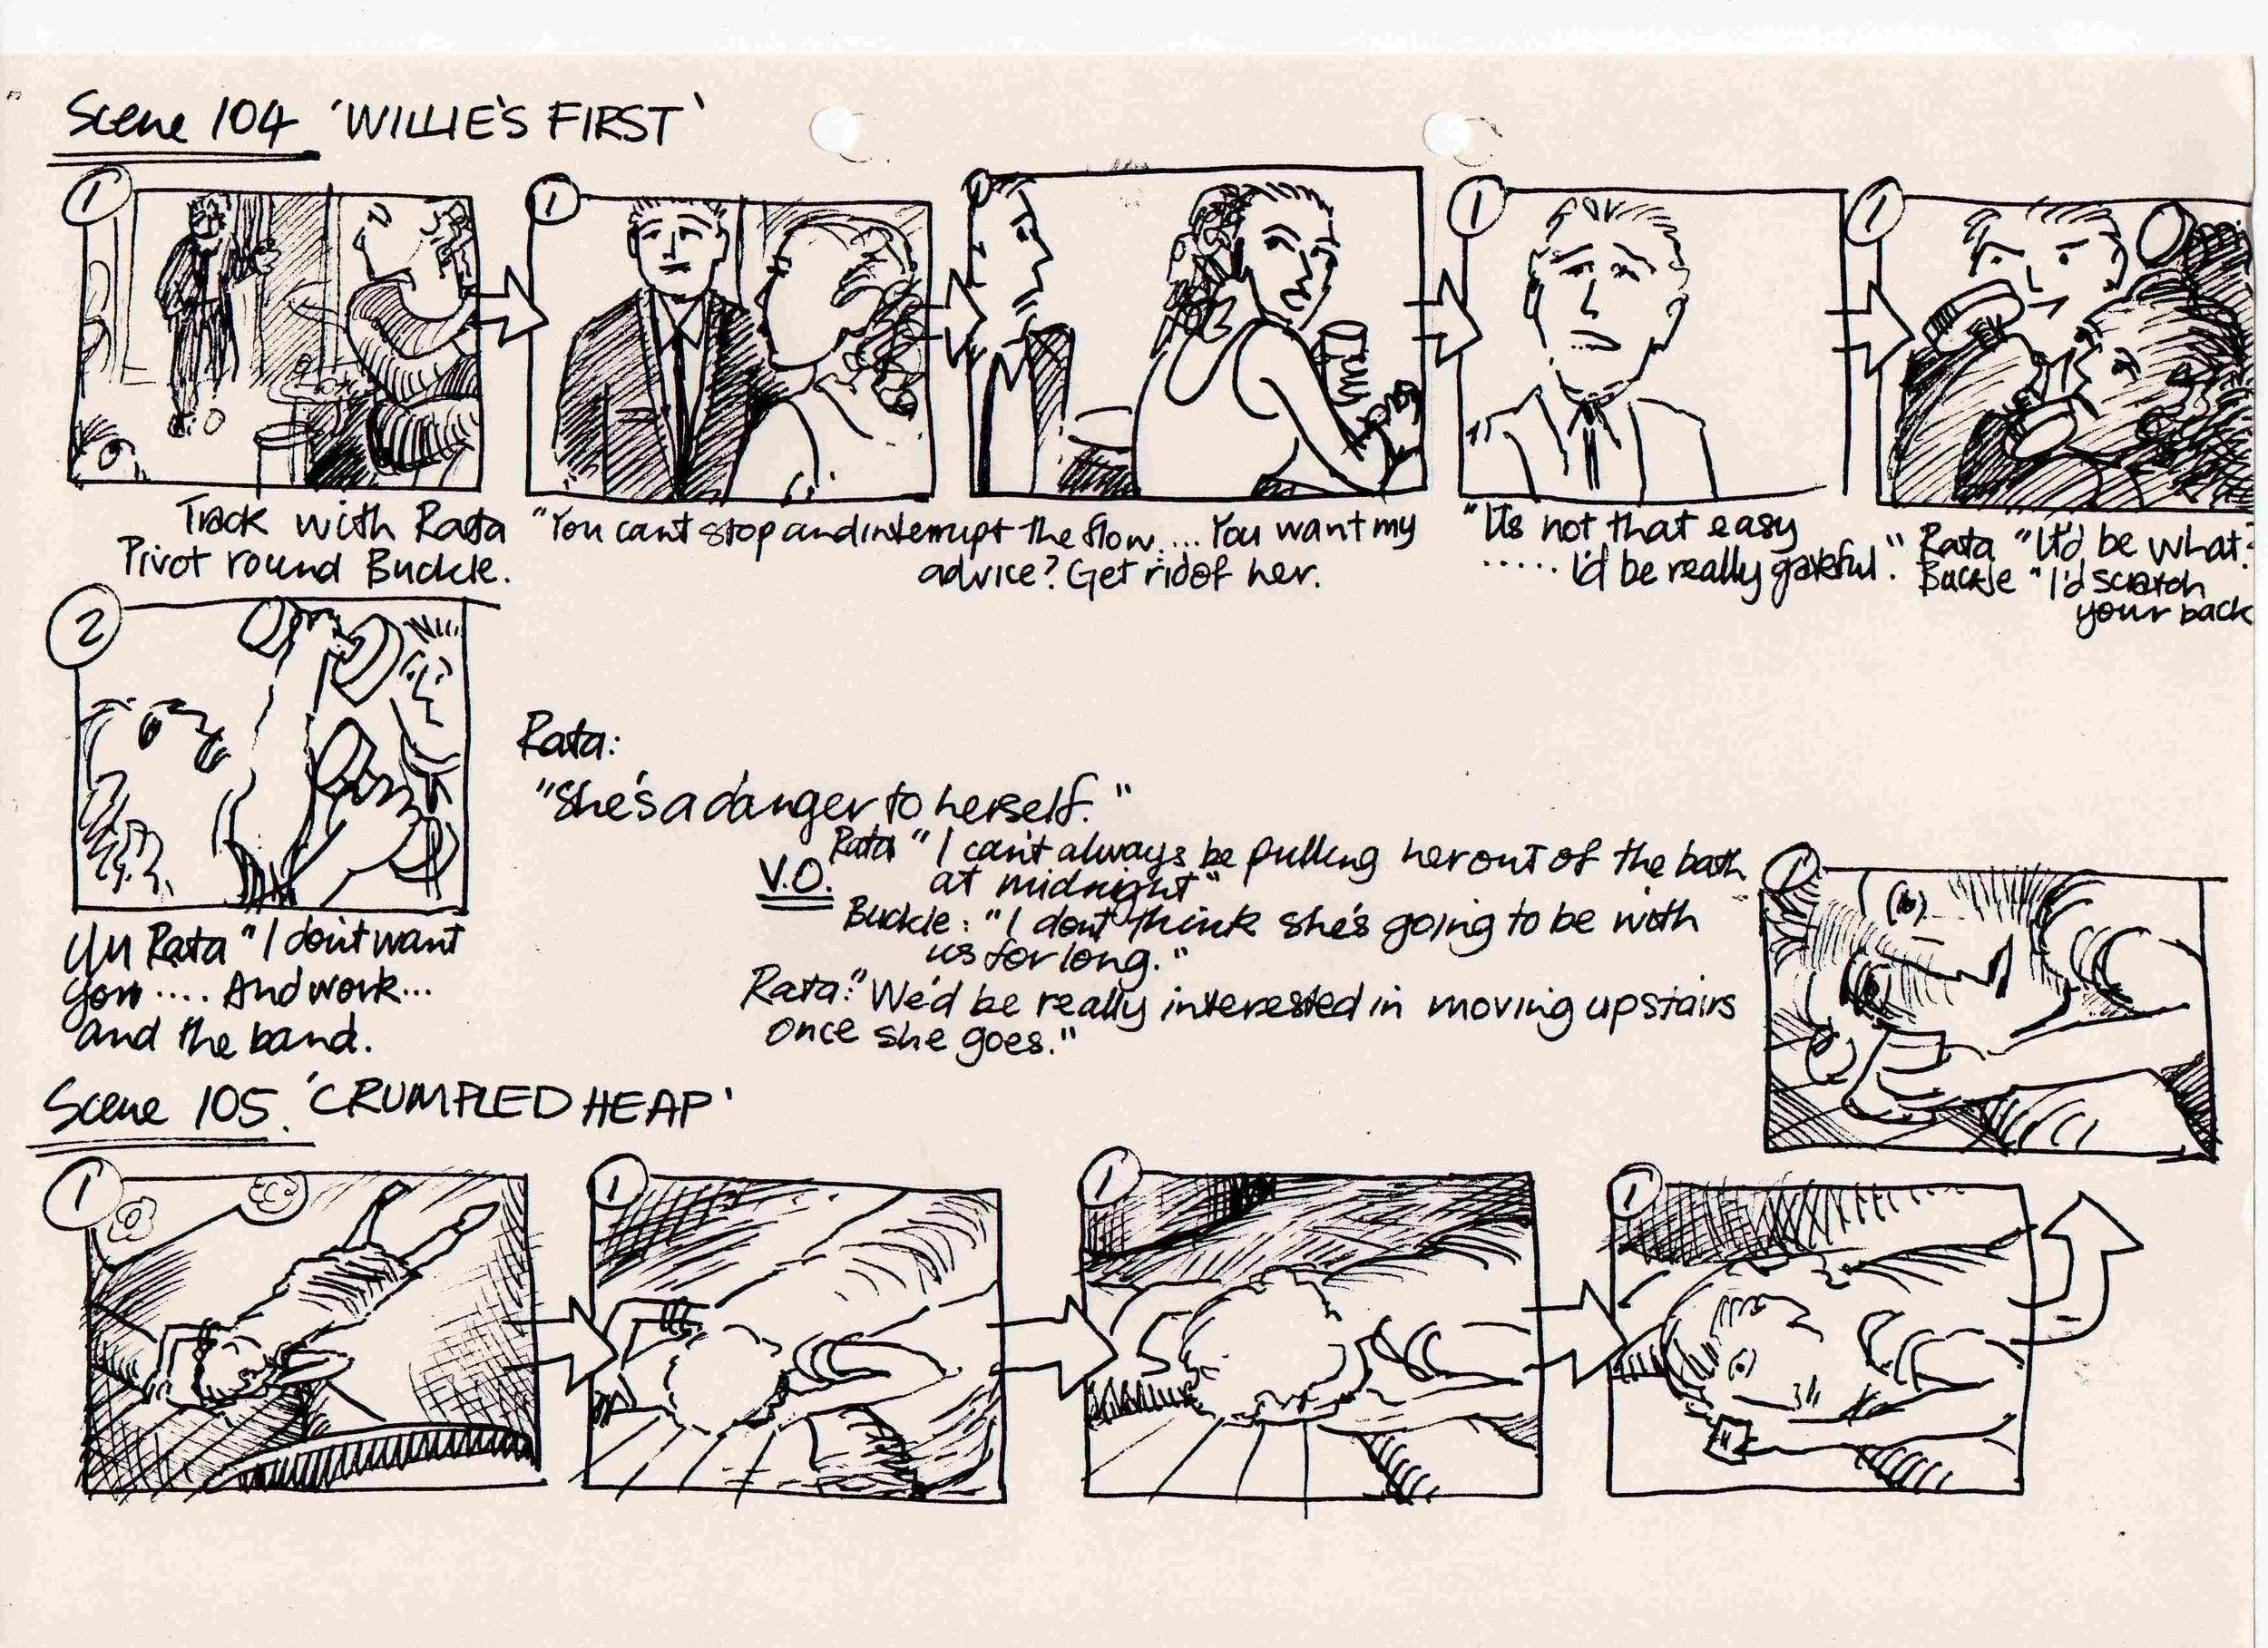 Scene 104 'WILLIE'S FIRST'
1
1
1
1
1
Track with Rata
Pivot round Buckle.
"You cant stop and interrupt the flow.... You want my
advice? Get rid of her.
"Its not that easy
..... I'd be really grateful."
Rata "It'd be what?
Buckle "I'd scratch
your back
2
Rata "I dont want
you.... And work...
and the band.
Rata:
"She's a danger to herself."
V.O.
Rata "I can't always be pulling her out of the bath
at midnight"
Buckle: "I dont think she's going to be with
us for long."
Rata: "We'd be really interested in moving upstairs
once she goes."
1
Scene 105. 'CRUMPLED HEAP'
1
1
1
1